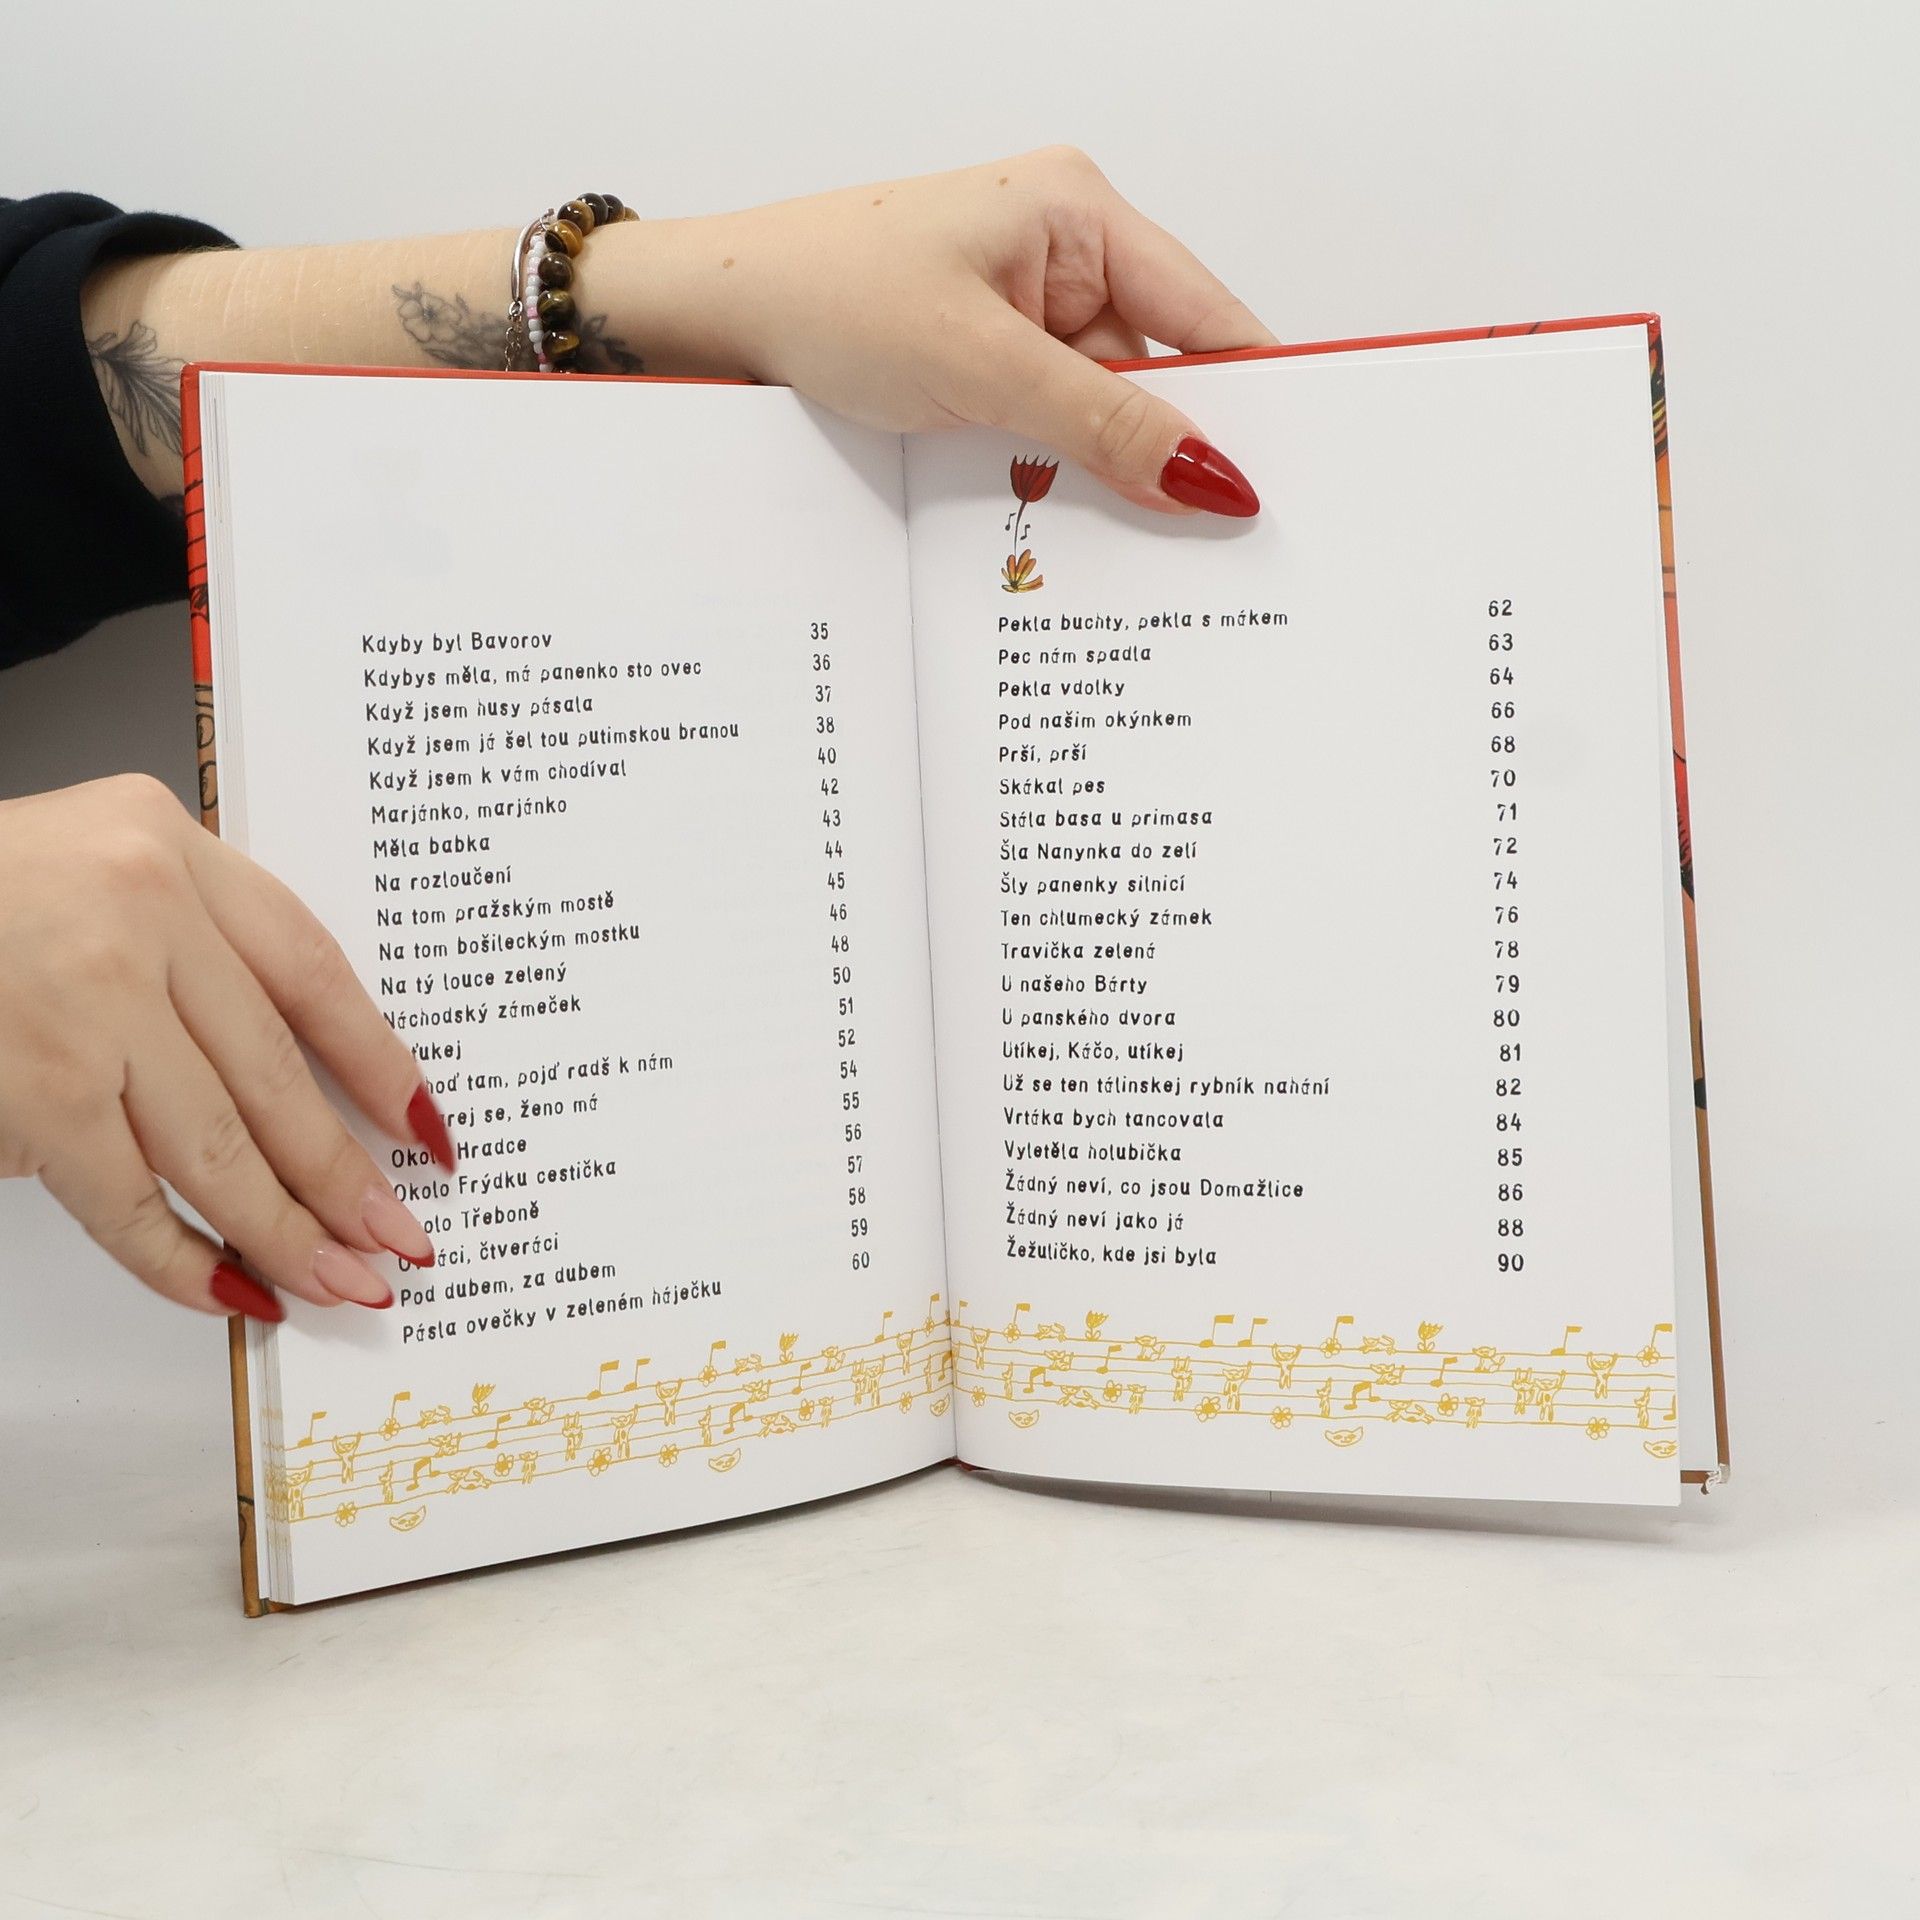 Kdyby byl Bavorov 35
Kdybys měla, má panenko sto ovec 36
Když jsem husy pásala 37
Když jsem já šel tou putimskou branou 38
Když jsem k vám chodíval 40
Marjánko, marjánko 42
Měla babka 43
Na rozloučení 44
Na tom pražským mostě 45
Na tom bošileckým mostku 46
Na tý louce zelený 48
Náchodský zámeček 50
51
tam, pojď radš k nám 52
se, ženo má 54
Okolo Hradce 55
Okolo Frýdku cestička 56
Okolo Třeboně 57
čtveráci 58
Pod dubem, za dubem 59
Pásla ovečky v zeleném háječku 60
Pekla buchty, pekla s mákem 62
Pec nám spadla 63
Pekla vdolky 64
Pod našim okýnkem 66
Prší, prší 68
Skákal pes 70
Stála basa u primasa 71
Šla Nanynka do zelí 72
Šly panenky silnicí 74
Ten chlumecký zámek 76
Travička zelená 78
U našeho Bárty 79
U panského dvora 80
Utíkej, Káčo, utíkej 81
Už se ten tálinskej rybník nahání 82
Vrtáka bych tancovala 84
Vyletěla holubička 85
Žádný neví, co jsou Domažlice 86
Žádný neví jako já 88
Žežuličko, kde jsi byla 90